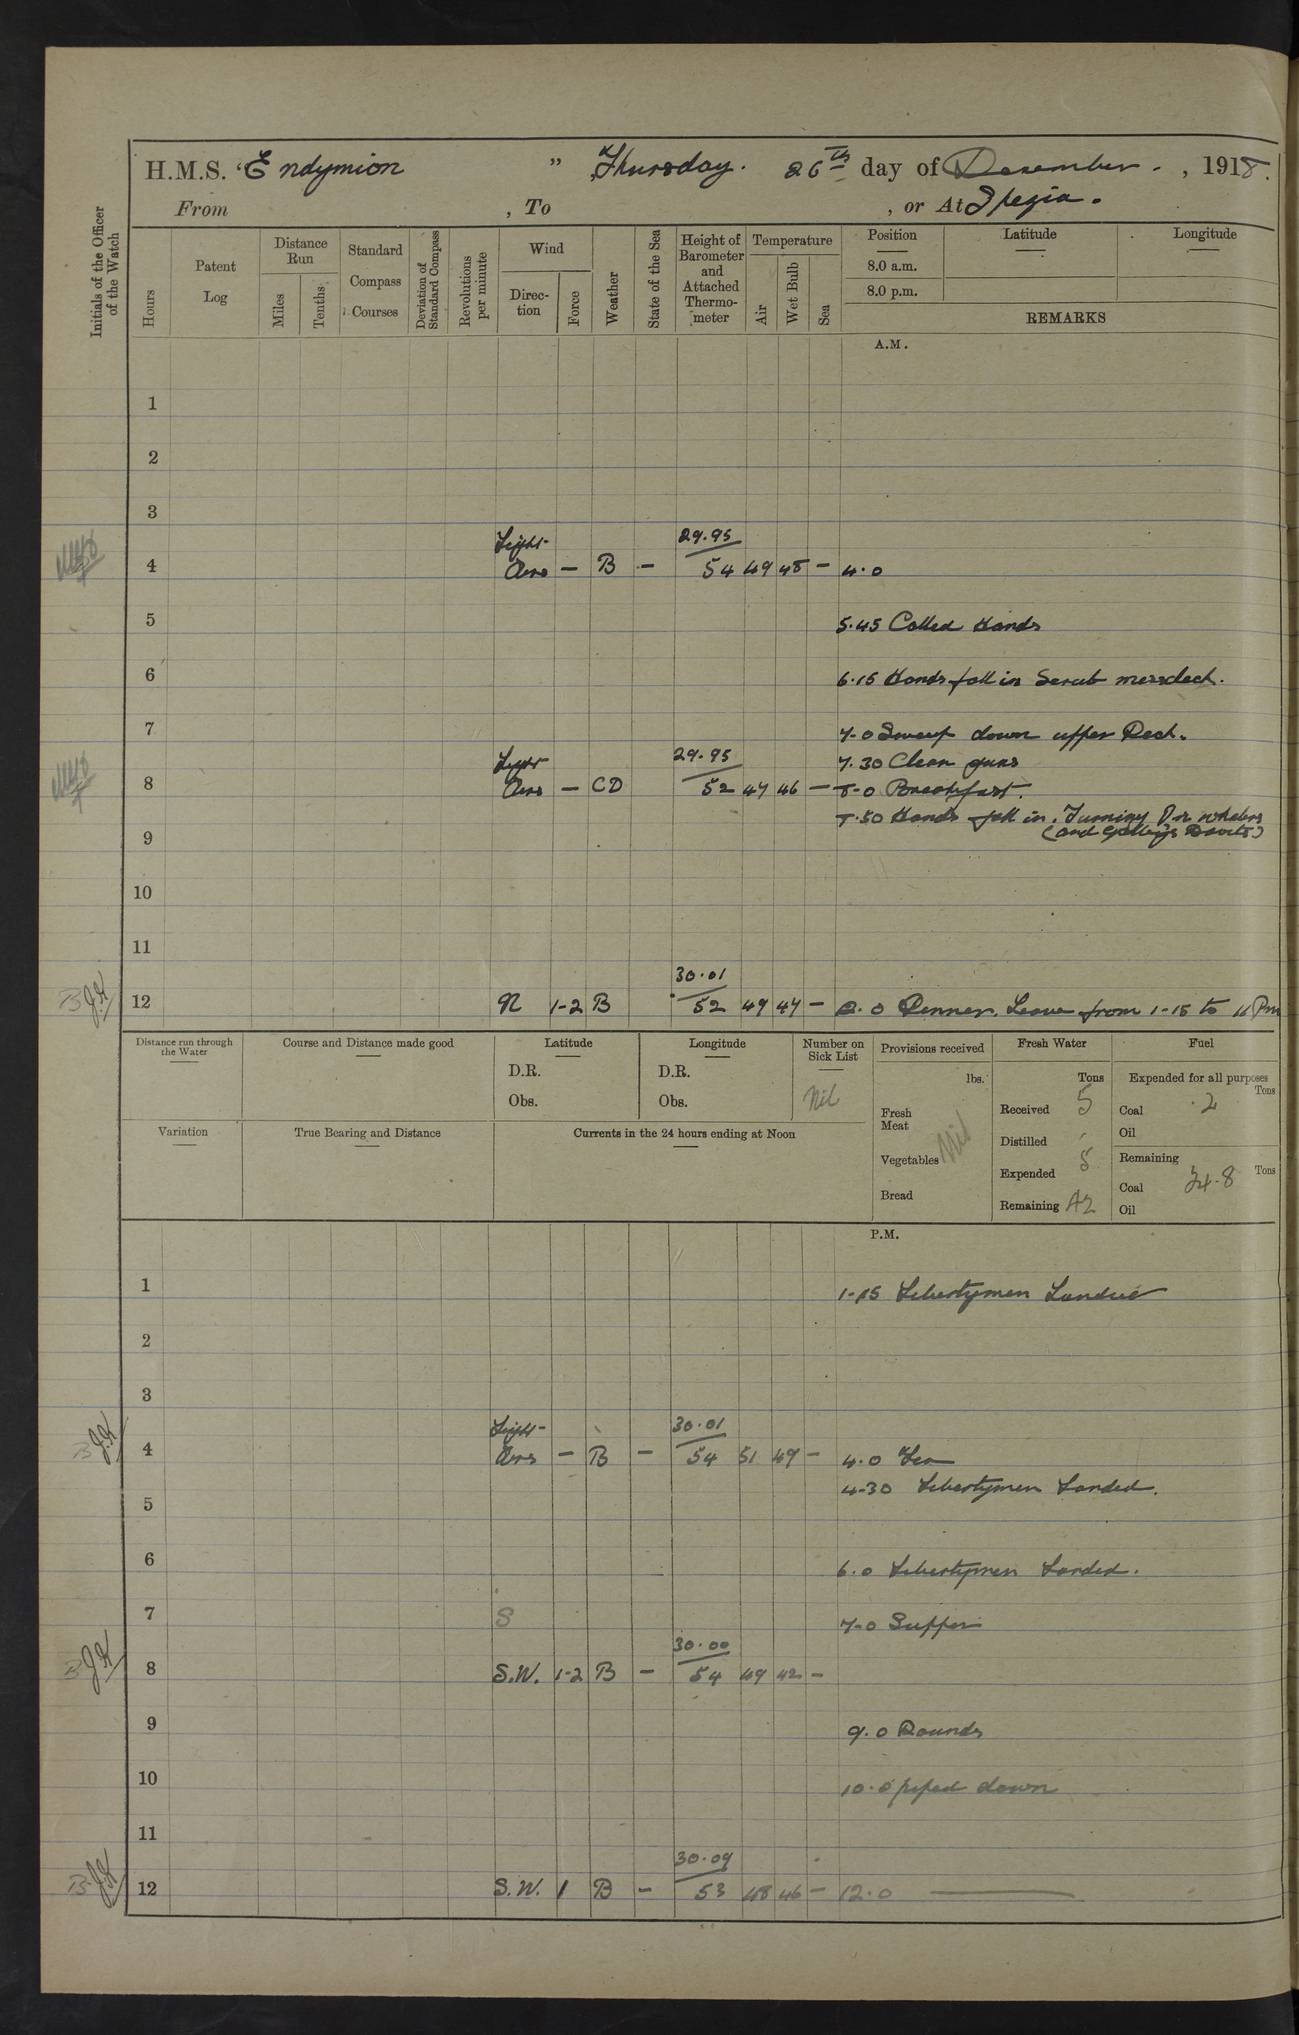 H.M.S. "Endymion" Thursday. 26th day of December. , 1918.
From , To , or At Spezia.
Initials of the Officer of the Watch
Hours
Patent Log
Distance Run
Miles
Tenths
Standard Compass Courses
Deviation of Standard Compass
Revolutions per minute
Wind
Direction
Force
Weather
State of the Sea
Height of Barometer and Attached Thermometer
Temperature
Air
Wet Bulb
Sea
Position Latitude Longitude
8.0 a.m.
8.0 p.m.
REMARKS
A.M.
1
2
3
Light 29.95
4 Airs — B — 54 49 48 — 4.0
5 5.45 Called Hands
6 6.15 Hands fall in Scrub messdeck.
7 7-0 Sweep down upper Deck.
Light 29.95 7.30 Clean guns
8 Airs — CD 52 47 46 — 8-0 Breakfast.
8.50 Hands fall in. Turning In whalers
9 (and Galleys Davits)
10
11
30.01
12 N 1-2 B 52 49 47 — 0.0 Dinner. Leave from 1-15 to 11 Pm
Distance run through the Water
Course and Distance made good
Latitude
D.R.
Obs.
Longitude
D.R.
Obs.
Number on Sick List
Nil
Provisions received
lbs.
Fresh Meat
Vegetables Nil
Bread
Fresh Water
Tons
Received 5
Distilled
Expended 5
Remaining 42
Fuel
Expended for all purposes
Tons
Coal .2
Oil
Remaining
Tons
Coal 34.8
Oil
Variation
True Bearing and Distance
Currents in the 24 hours ending at Noon
P.M.
1 1-15 Libertymen Landed
2
3
Light 30.01
4 Airs — B — 54 51 49 — 4.0 Tea
4-30 Libertymen Landed.
5
6 6.0 Libertymen Landed.
7 S 7-0 Supper
30.00
8 S.W. 1-2 B — 54 49 42 —
9 9.0 Rounds
10 10.0 piped down
11
30.09
12 S.W. 1 B — 53 48 46 — 12.0 —